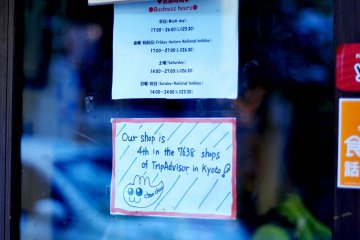 ●営業時間●
●Business hours●
平日(Week day)
17:00~26:00(L.O25:30)
金曜・祝前日(Friday・before National holiday)
17:00~27:00(L.O26:30)
土曜(Saturday)
14:00~27:00(L.O26:30)
日曜・祝日(Sunday・National holiday)
14:00~24:00(L.O23:30)
Our shop is
4th in the 7638 shops
of TripAdvisor in Kyoto
chao chao
食
話